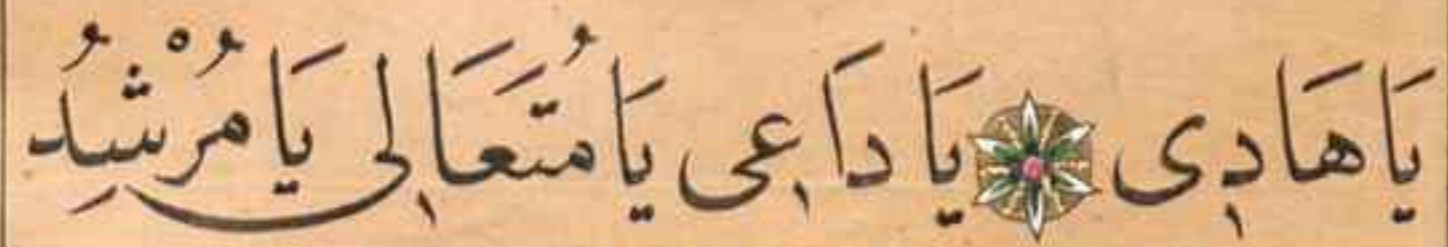 يَا هَادِى يَا دَاعِى يَا مُتَعَالِى يَا مُرْشِدُ